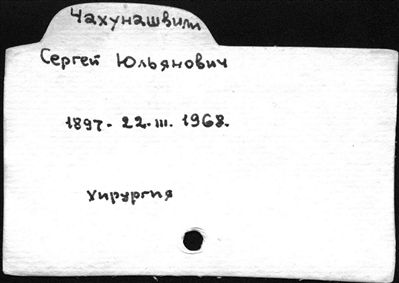 Чахунашвили
Сергей Юльянович
1897 - 22.III. 1968.
хирургия